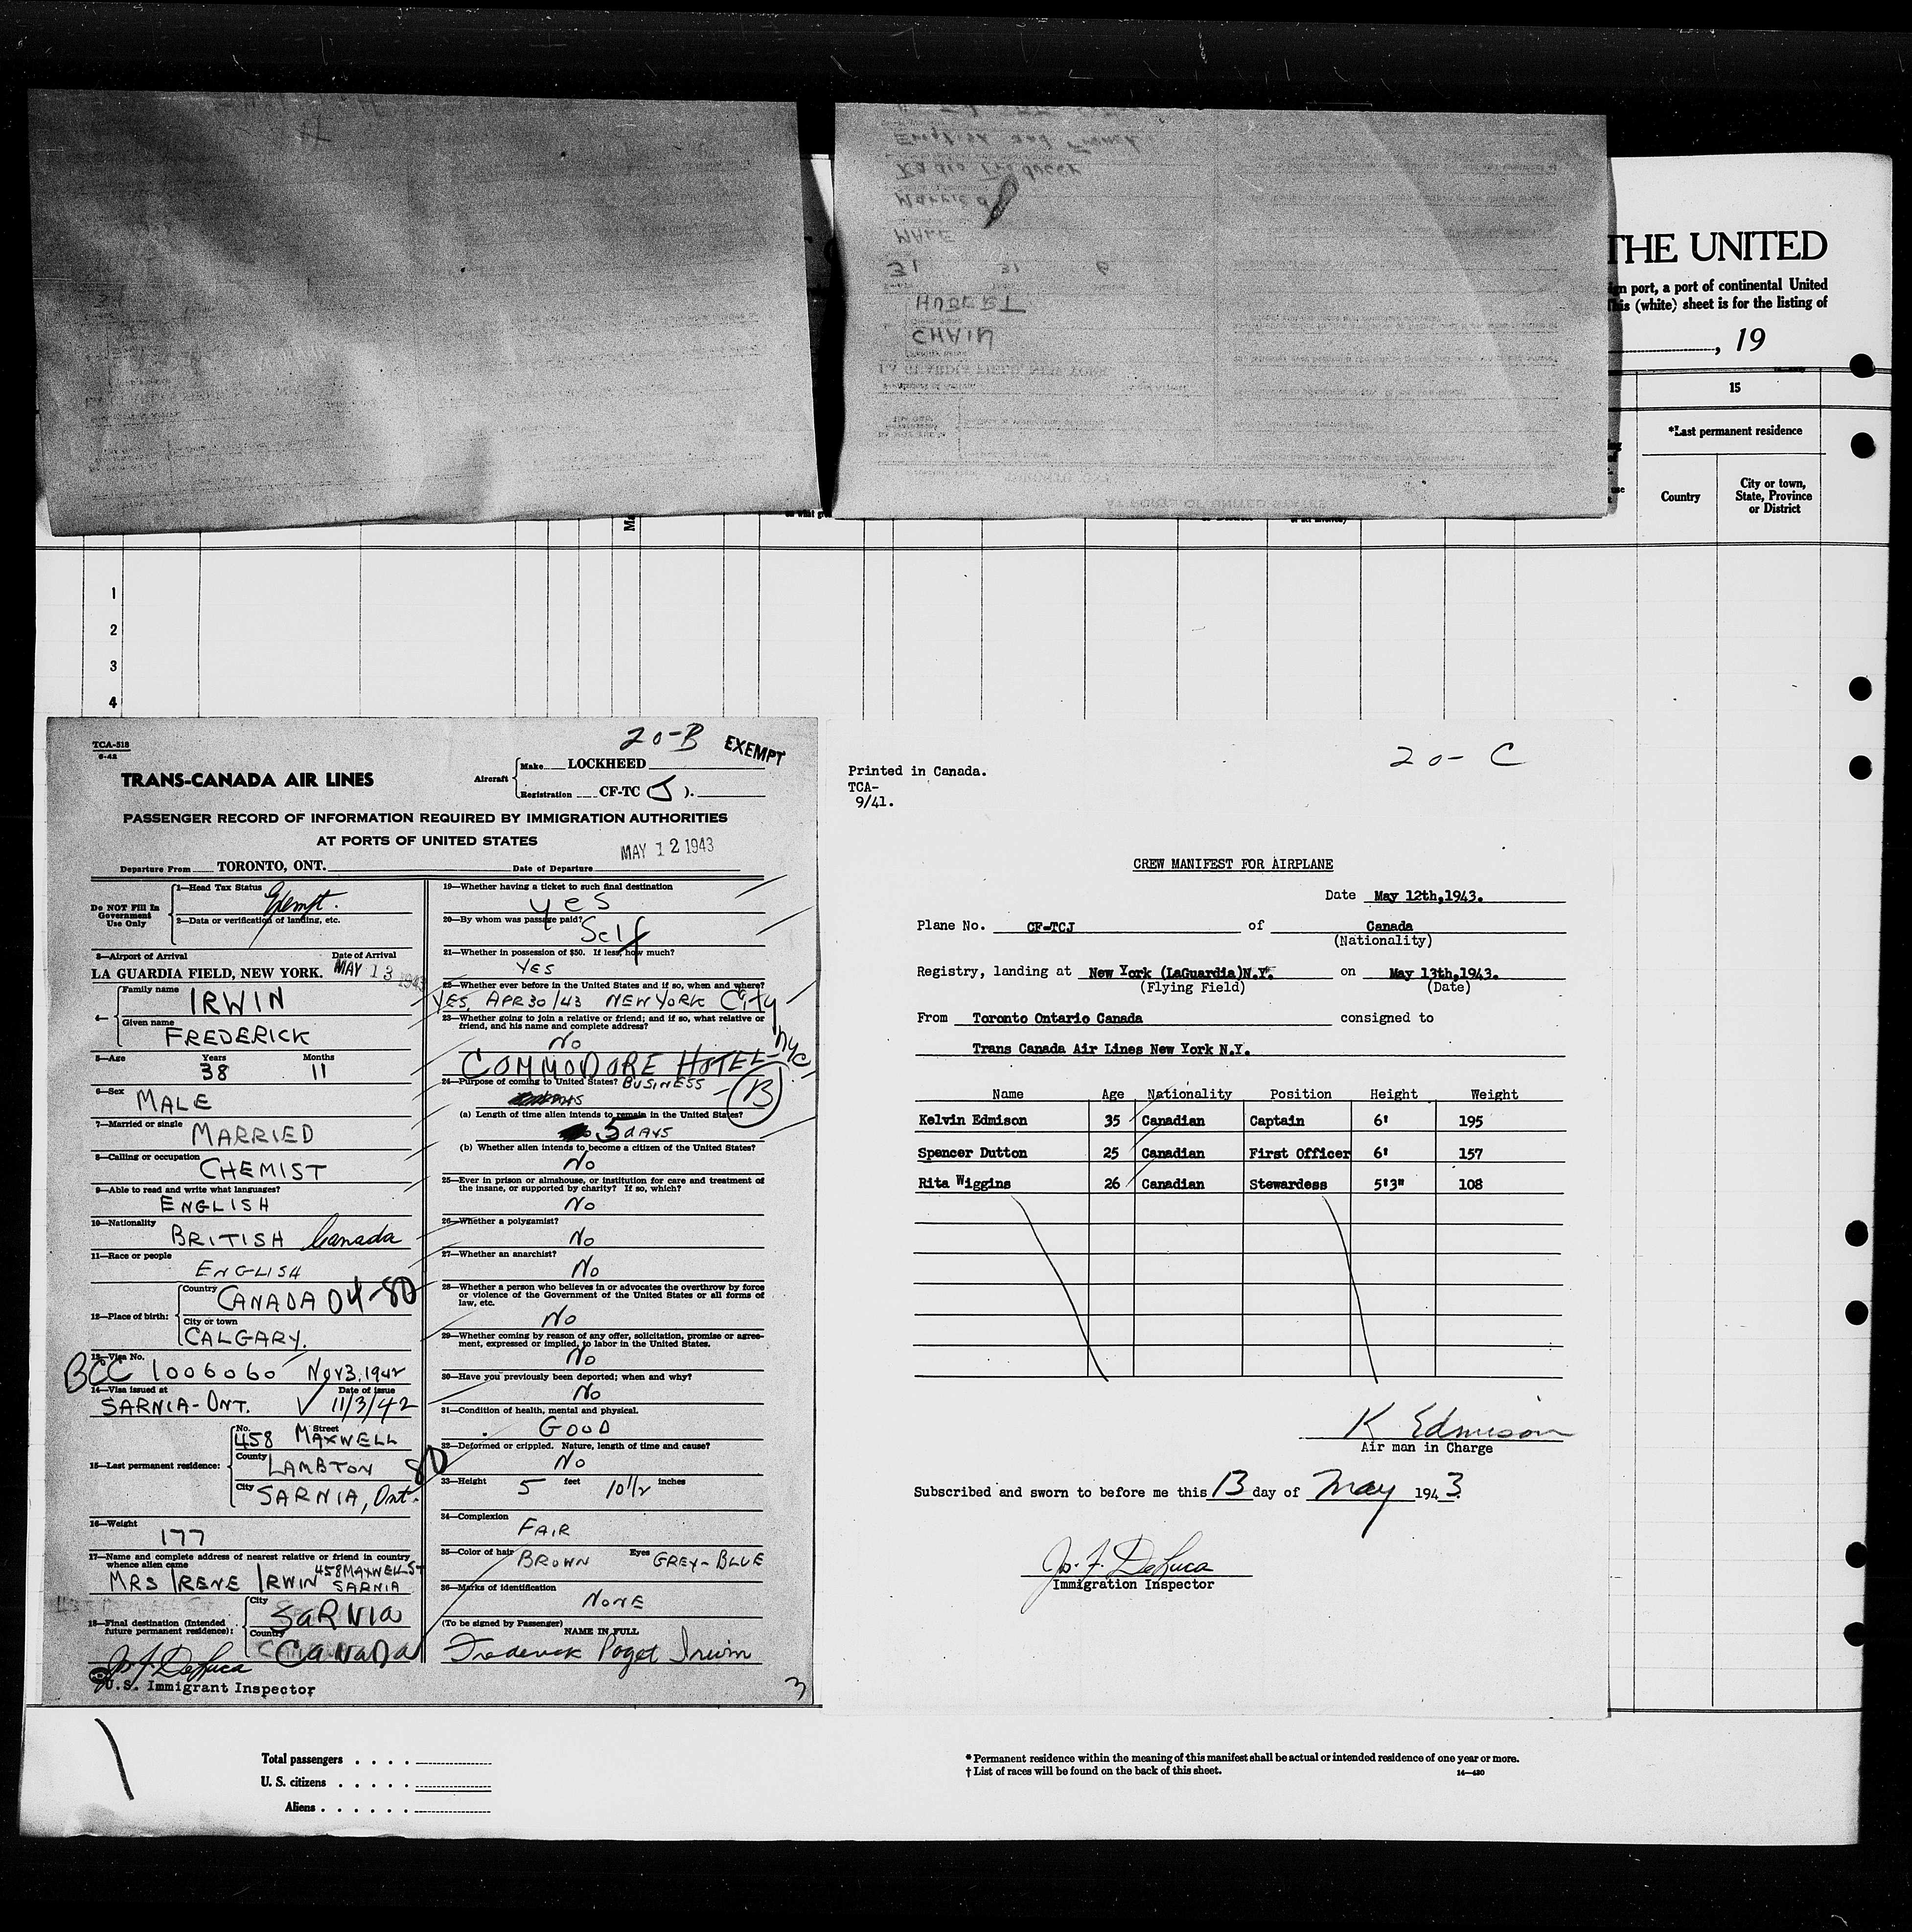 THE UNITED
ign port, a port of continental United
This (white) sheet is for the listing of
, 19
15
*Last permanent residence
Country
City or town,
State, Province
or District
English and French
Radio Producer
Married
MALE
31 31 6
HUBERT
CHAIN
LA GUARDIA FIELD, NEW YORK
AT PORTS OF UNITED STATES
1
2
3
4
20-B EXEMPT
TCA-518
6-42
TRANS-CANADA AIR LINES
Aircraft Make LOCKHEED
Registration CF-TC (J).
PASSENGER RECORD OF INFORMATION REQUIRED BY IMMIGRATION AUTHORITIES
AT PORTS OF UNITED STATES
Departure From TORONTO, ONT. Date of Departure MAY 12 1943
Do NOT Fill In
Government
Use Only
1—Head Tax Status Exempt.
2—Data or verification of landing, etc.
3—Airport of Arrival Date of Arrival
LA GUARDIA FIELD, NEW YORK. MAY 13 1943
4— Family name IRWIN
Given name FREDERICK
5—Age Years 38 Months 11
6—Sex MALE
7—Married or single MARRIED
8—Calling or occupation CHEMIST
9—Able to read and write what languages?
ENGLISH
10—Nationality BRITISH Canada
11—Race or people ENGLISH
12—Place of birth: Country CANADA 04-80
City or town CALGARY.
13—Visa No.
BCC 1006060 Nov 3, 1942
14—Visa issued at Date of issue
SARNIA-ONT. √ 11/3/42
15—Last permanent residence: No. 458 Street MAXWELL
County LAMBTON 80
City SARNIA, Ont.
16—Weight 177
17—Name and complete address of nearest relative or friend in country
whence alien came
MRS IRENE IRWIN 458 MAXWELL ST
SARNIA
18—Final destination (Intended
future permanent residence): City SARNIA
Country CANADA
Jo. F. DeLuca
U.S. Immigrant Inspector
19—Whether having a ticket to such final destination
yes
20—By whom was passage paid?
Self
21—Whether in possession of $50. If less, how much?
YES
22—Whether ever before in the United States and if so, when and where?
YES, APR 30/43 NEW YORK City
23—Whether going to join a relative or friend; and if so, what relative or
friend, and his name and complete address?
No
COMMODORE HOTEL - nyc
24—Purpose of coming to United States? BUSINESS
B
(a) Length of time alien intends to remain in the United States?
5 DAYS
(b) Whether alien intends to become a citizen of the United States?
No
25—Ever in prison or almshouse, or institution for care and treatment of
the insane, or supported by charity? If so, which?
No
26—Whether a polygamist?
No
27—Whether an anarchist?
No
28—Whether a person who believes in or advocates the overthrow by force
or violence of the Government of the United States or all forms of
law, etc.
No
29—Whether coming by reason of any offer, solicitation, promise or agree-
ment, expressed or implied, to labor in the United States.
No
30—Have you previously been deported; when and why?
No
31—Condition of health, mental and physical.
GOOD
32—Deformed or crippled. Nature, length of time and cause?
No
33—Height 5 feet 10 1/2 inches
34—Complexion FAIR
35—Color of hair BROWN Eyes GREY-BLUE
36—Marks of identification
NONE
(To be signed by Passenger)
NAME IN FULL
Frederick Paget Irwin
3
20-C
Printed in Canada.
TCA-
9/41.
CREW MANIFEST FOR AIRPLANE
Date May 12th,1943.
Plane No. CF-TCJ of Canada
(Nationality)
Registry, landing at New York (LaGuardia)N.Y. on May 13th,1943.
(Flying Field) (Date)
From Toronto Ontario Canada consigned to
Trans Canada Air Lines New York N.Y.
Name Age Nationality Position Height Weight
Kelvin Edmison 35 Canadian Captain 6' 195
Spencer Dutton 25 Canadian First Officer 6' 157
Rita Wiggins 26 Canadian Stewardess 5'3" 108
K Edmison
Air man in Charge
Subscribed and sworn to before me this 13 day of May 1943.
Jo. F. DeLuca
Immigration Inspector
Total passengers . . . .
U. S. citizens . . . . .
Aliens . . . . . .
* Permanent residence within the meaning of this manifest shall be actual or intended residence of one year or more.
† List of races will be found on the back of this sheet.
14—430